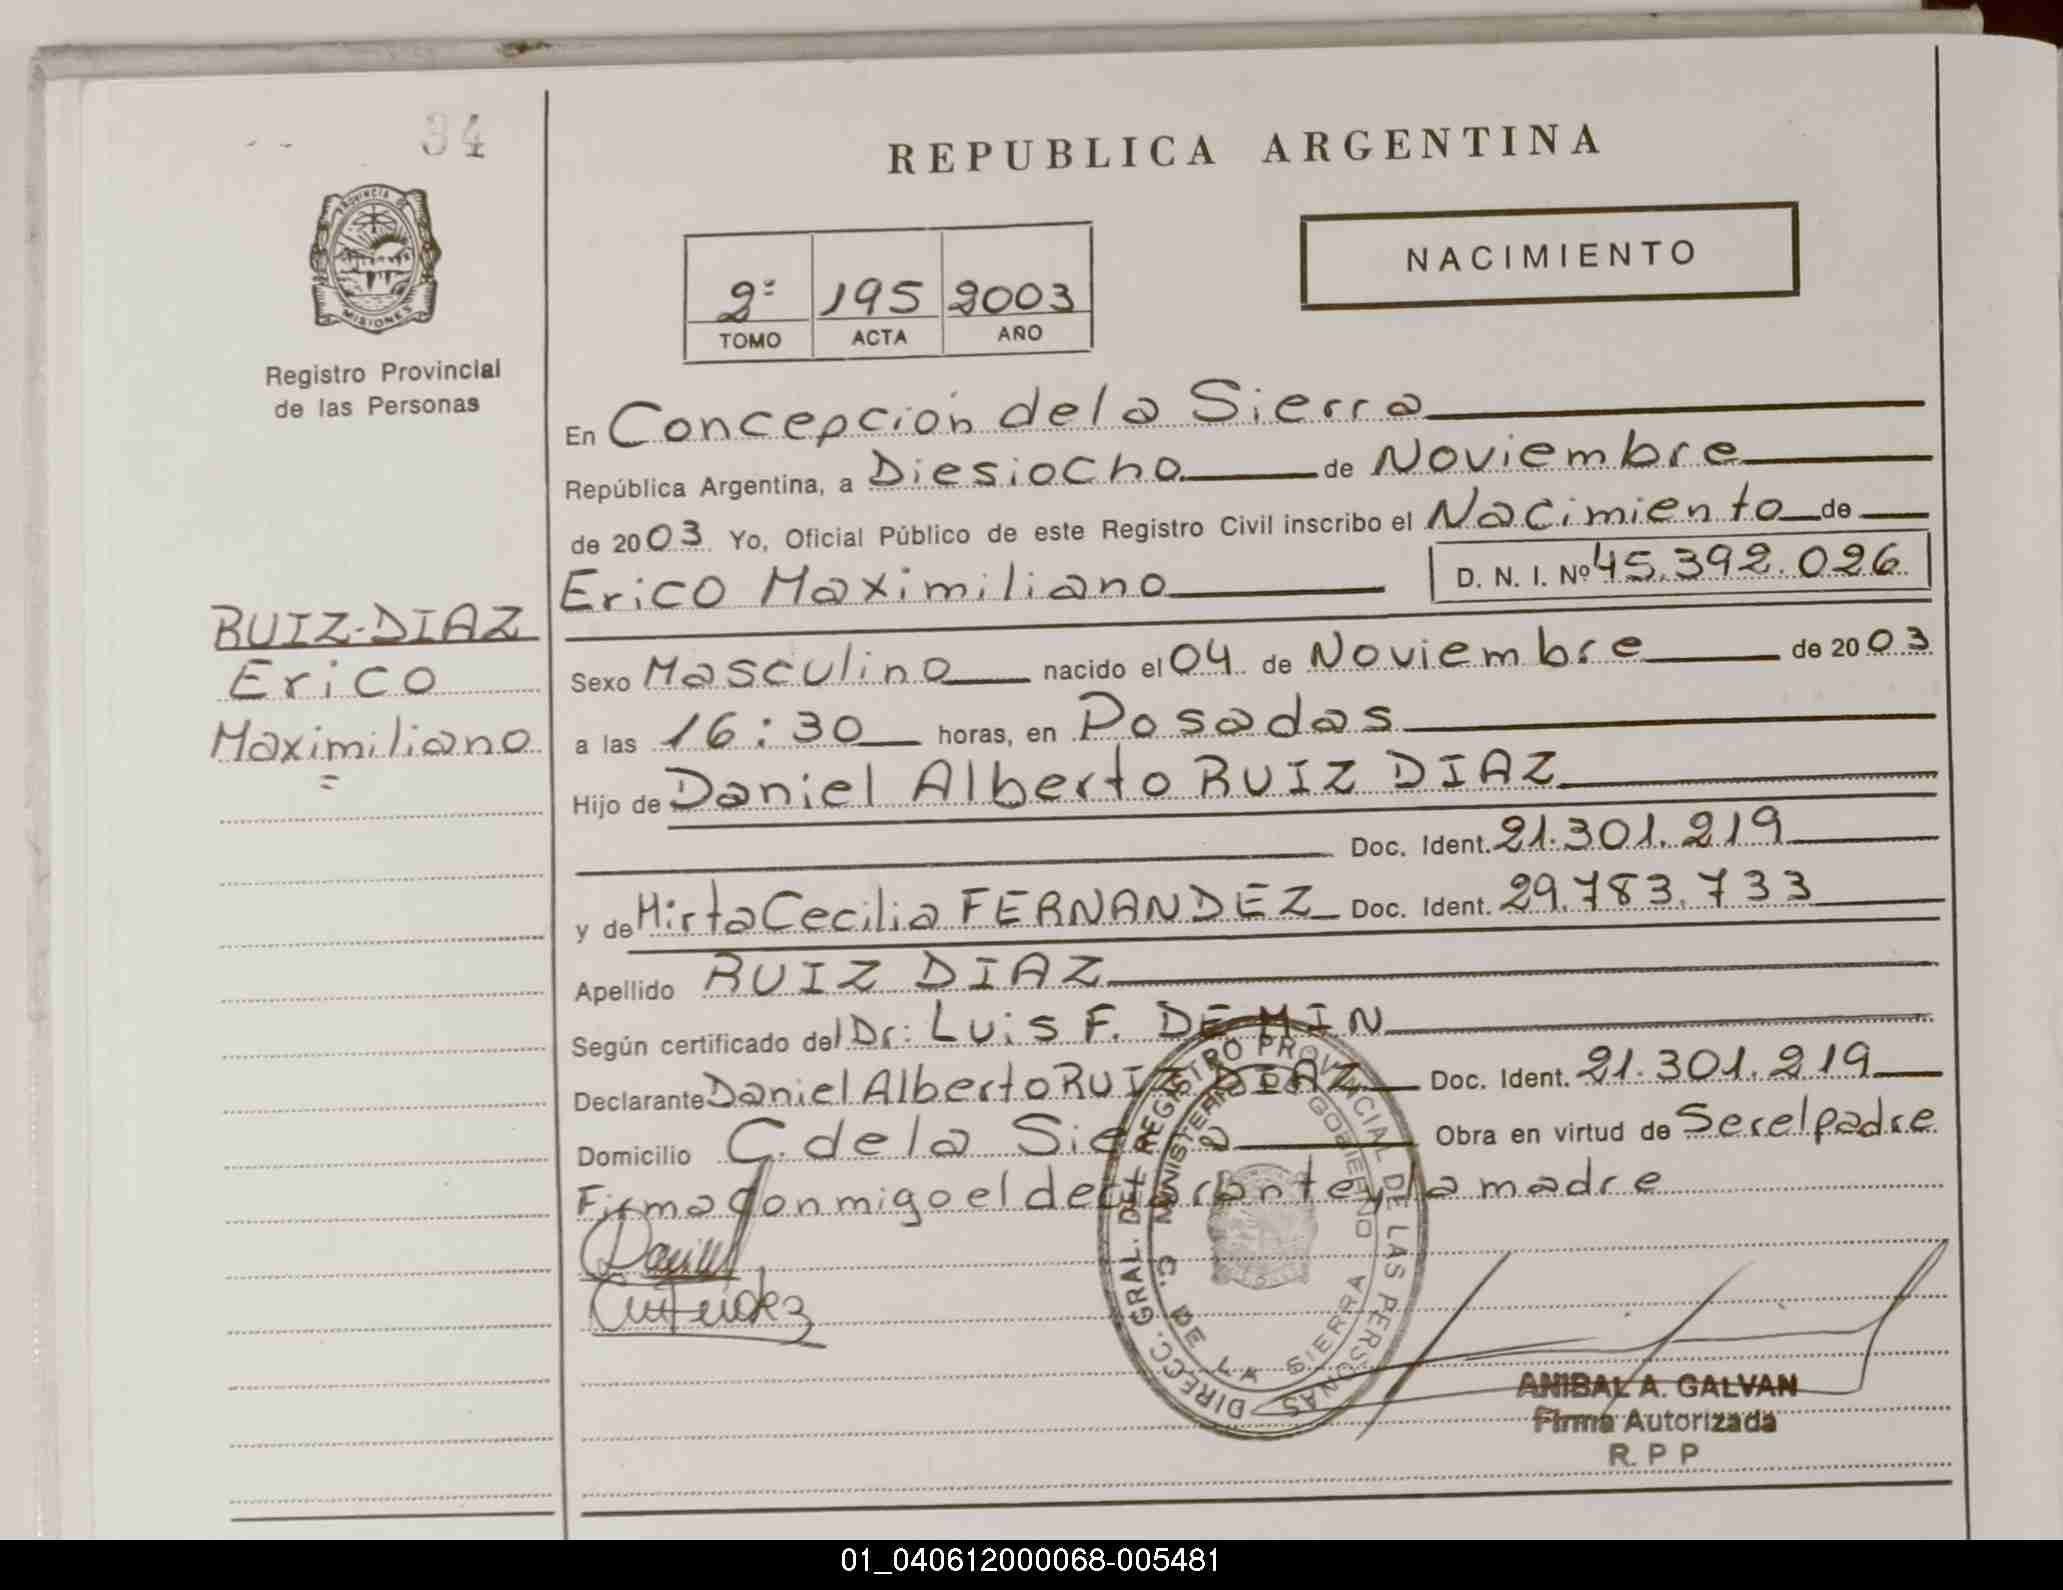 34
REPUBLICA ARGENTINA
PROVINCIA DE
MISIONES
Registro Provincial
de las Personas
NACIMIENTO
2º 195 2003
TOMO ACTA AÑO
En Concepción de la Sierra
República Argentina, a Diesiocho de Noviembre
de 2003 Yo, Oficial Público de este Registro Civil inscribo el Nacimiento de
Erico Maximiliano D. N. I. Nº 45.392.026
RUIZ-DIAZ
Erico
Maximiliano
Sexo Masculino nacido el 04 de Noviembre de 2003
a las 16:30 horas, en Posadas
Hijo de Daniel Alberto RUIZ DIAZ
Doc. Ident. 21.301.219
y de Mirta Cecilia FERNANDEZ Doc. Ident. 29.783.733
Apellido RUIZ DIAZ
Según certificado del Dr: Luis F. DE MIN
Declarante Daniel Alberto RUIZ DIAZ Doc. Ident. 21.301.219
Domicilio C. de la Sierra Obra en virtud de Ser el padre
Firma conmigo el declarante y la madre
DIRECC. GRAL. DEL REGISTRO PROVINCIAL DE LAS PERSONAS
MINISTERIO DE GOBIERNO
C. DE LA SIERRA
ANIBAL A. GALVAN
Firma Autorizada
R. P P
01_040612000068-005481